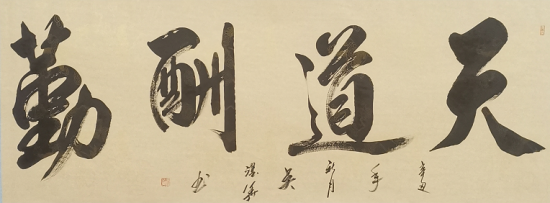 天道酬勤
辛丑年 新月 吴 书